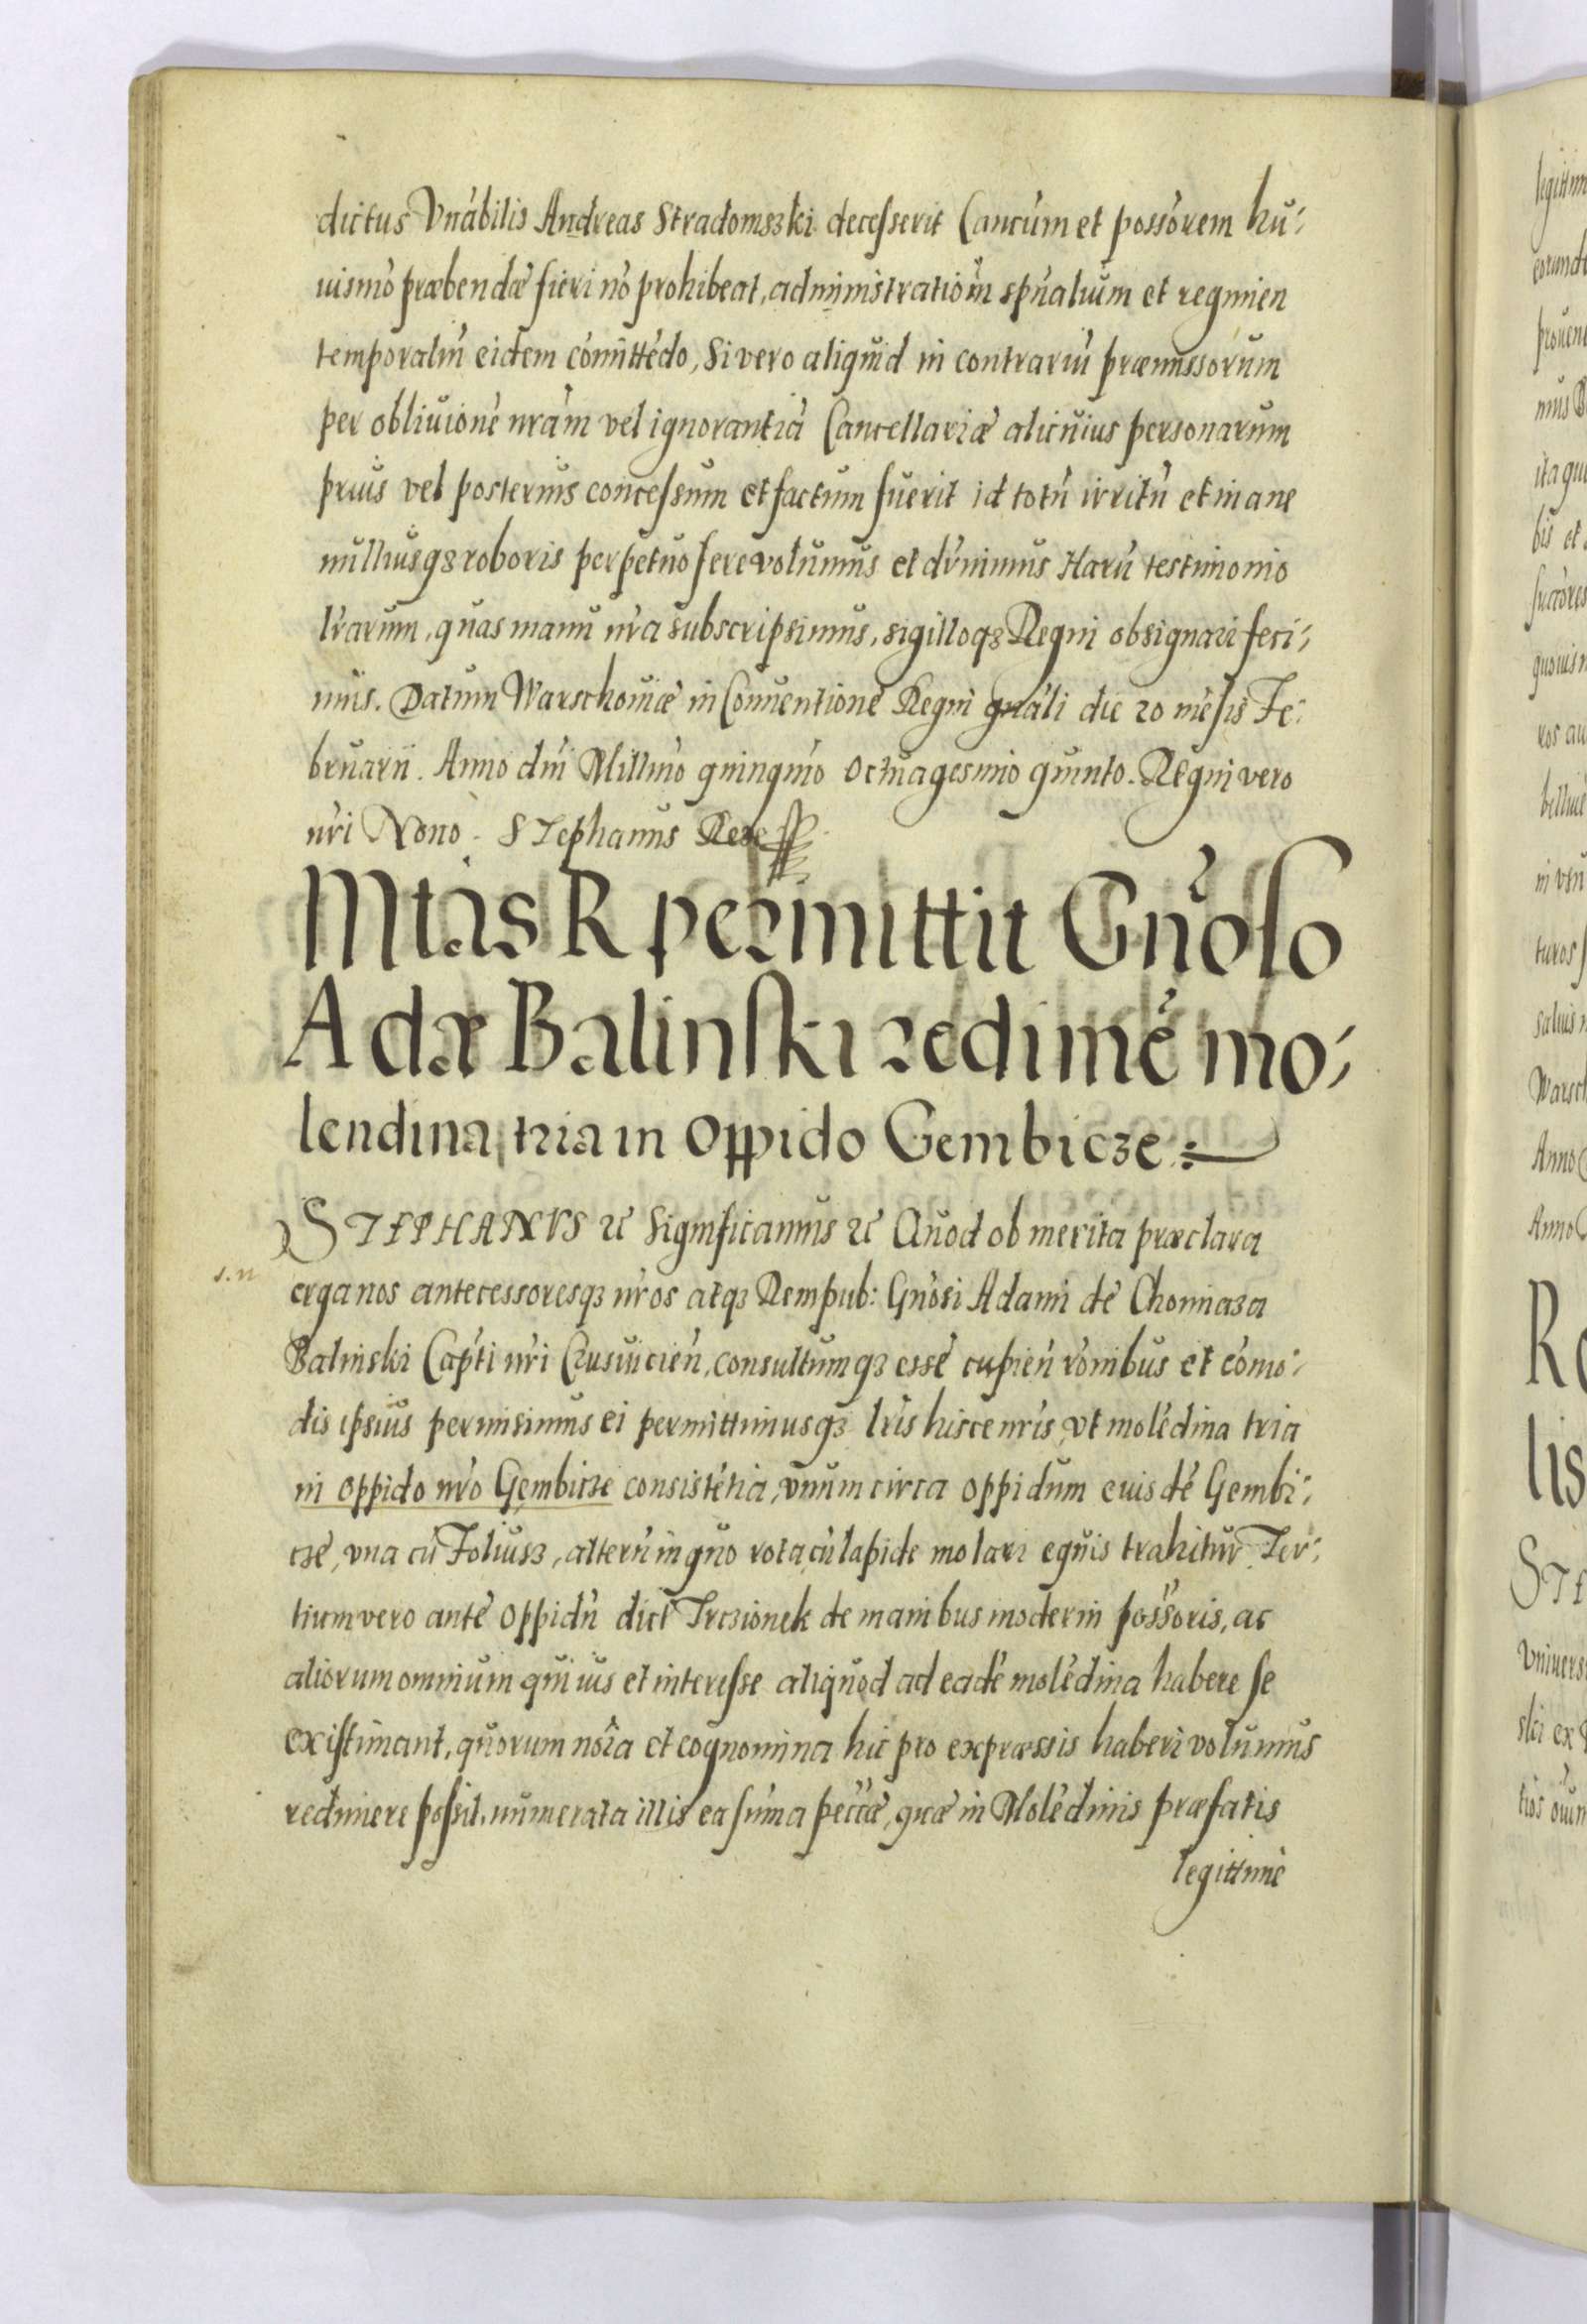 dictus Vnábilis Andreas Stradomszki decesserit Cancúm et possórem hu-
iusmó præbendæ fieri nó prohibeat, administratióm spńalium et regimen
temporaliú eidem cómittédo, Si vero aliquid in contrariú præmissorum
per obliuioné nrám vel ignorantiá Cancellariæ alicuius personarum
prius vel posterius concessum et factum fuerit id totú irritú et inane
nulliusq3 roboris perpetuo fere volumus et dńimus Harú testimonio
lrarum, quas manu nra subscripsimus, sigilloq3 Regni obsignari feci-
mus. Datum Warschouiæ in Conuentione Regni gnáli die 20 mésis Fe-
bruarii. Anno dńi Millmó quinqmó Octuagesimo quinto. Regni vero
nri Nono. Stephanus Rex
Mtás R permittit Gńoso
Adæ Balinski redimé mo-
lendina tria in Oppido Gembicze
STEPHANVS etc Significamus etc Quod ob merita præclara
erga nos antecessoresq3 nŕos atq3 Rempub: Gnósi Adami de Chomiaza
Balinski Capti nŕi Crusuicień, consultumq3 esse cupień rónibus et cómo-
dis ipsius permisimus ei permittimusq3 lris hisce nris, vt molédina tria
in oppido nŕo Gembicze consistétia, vnum circa oppidum eiusdé Gembi-
cze, vna cú Foliusz, alterú in quo rota cú lapide molari equis trahitur Ter-
tium vero ante Oppidú dict Trczionek de manibus moderni possóris, ac
aliorum omnium qui ius et interesse aliquod ad eadé molédina habere se
existimant, quorum nóia et cognomina hic pro expræssis haberi volumus
redimere possit, numerata illis ea suma peccæ, quæ in Molédinis præfatis
legittimè